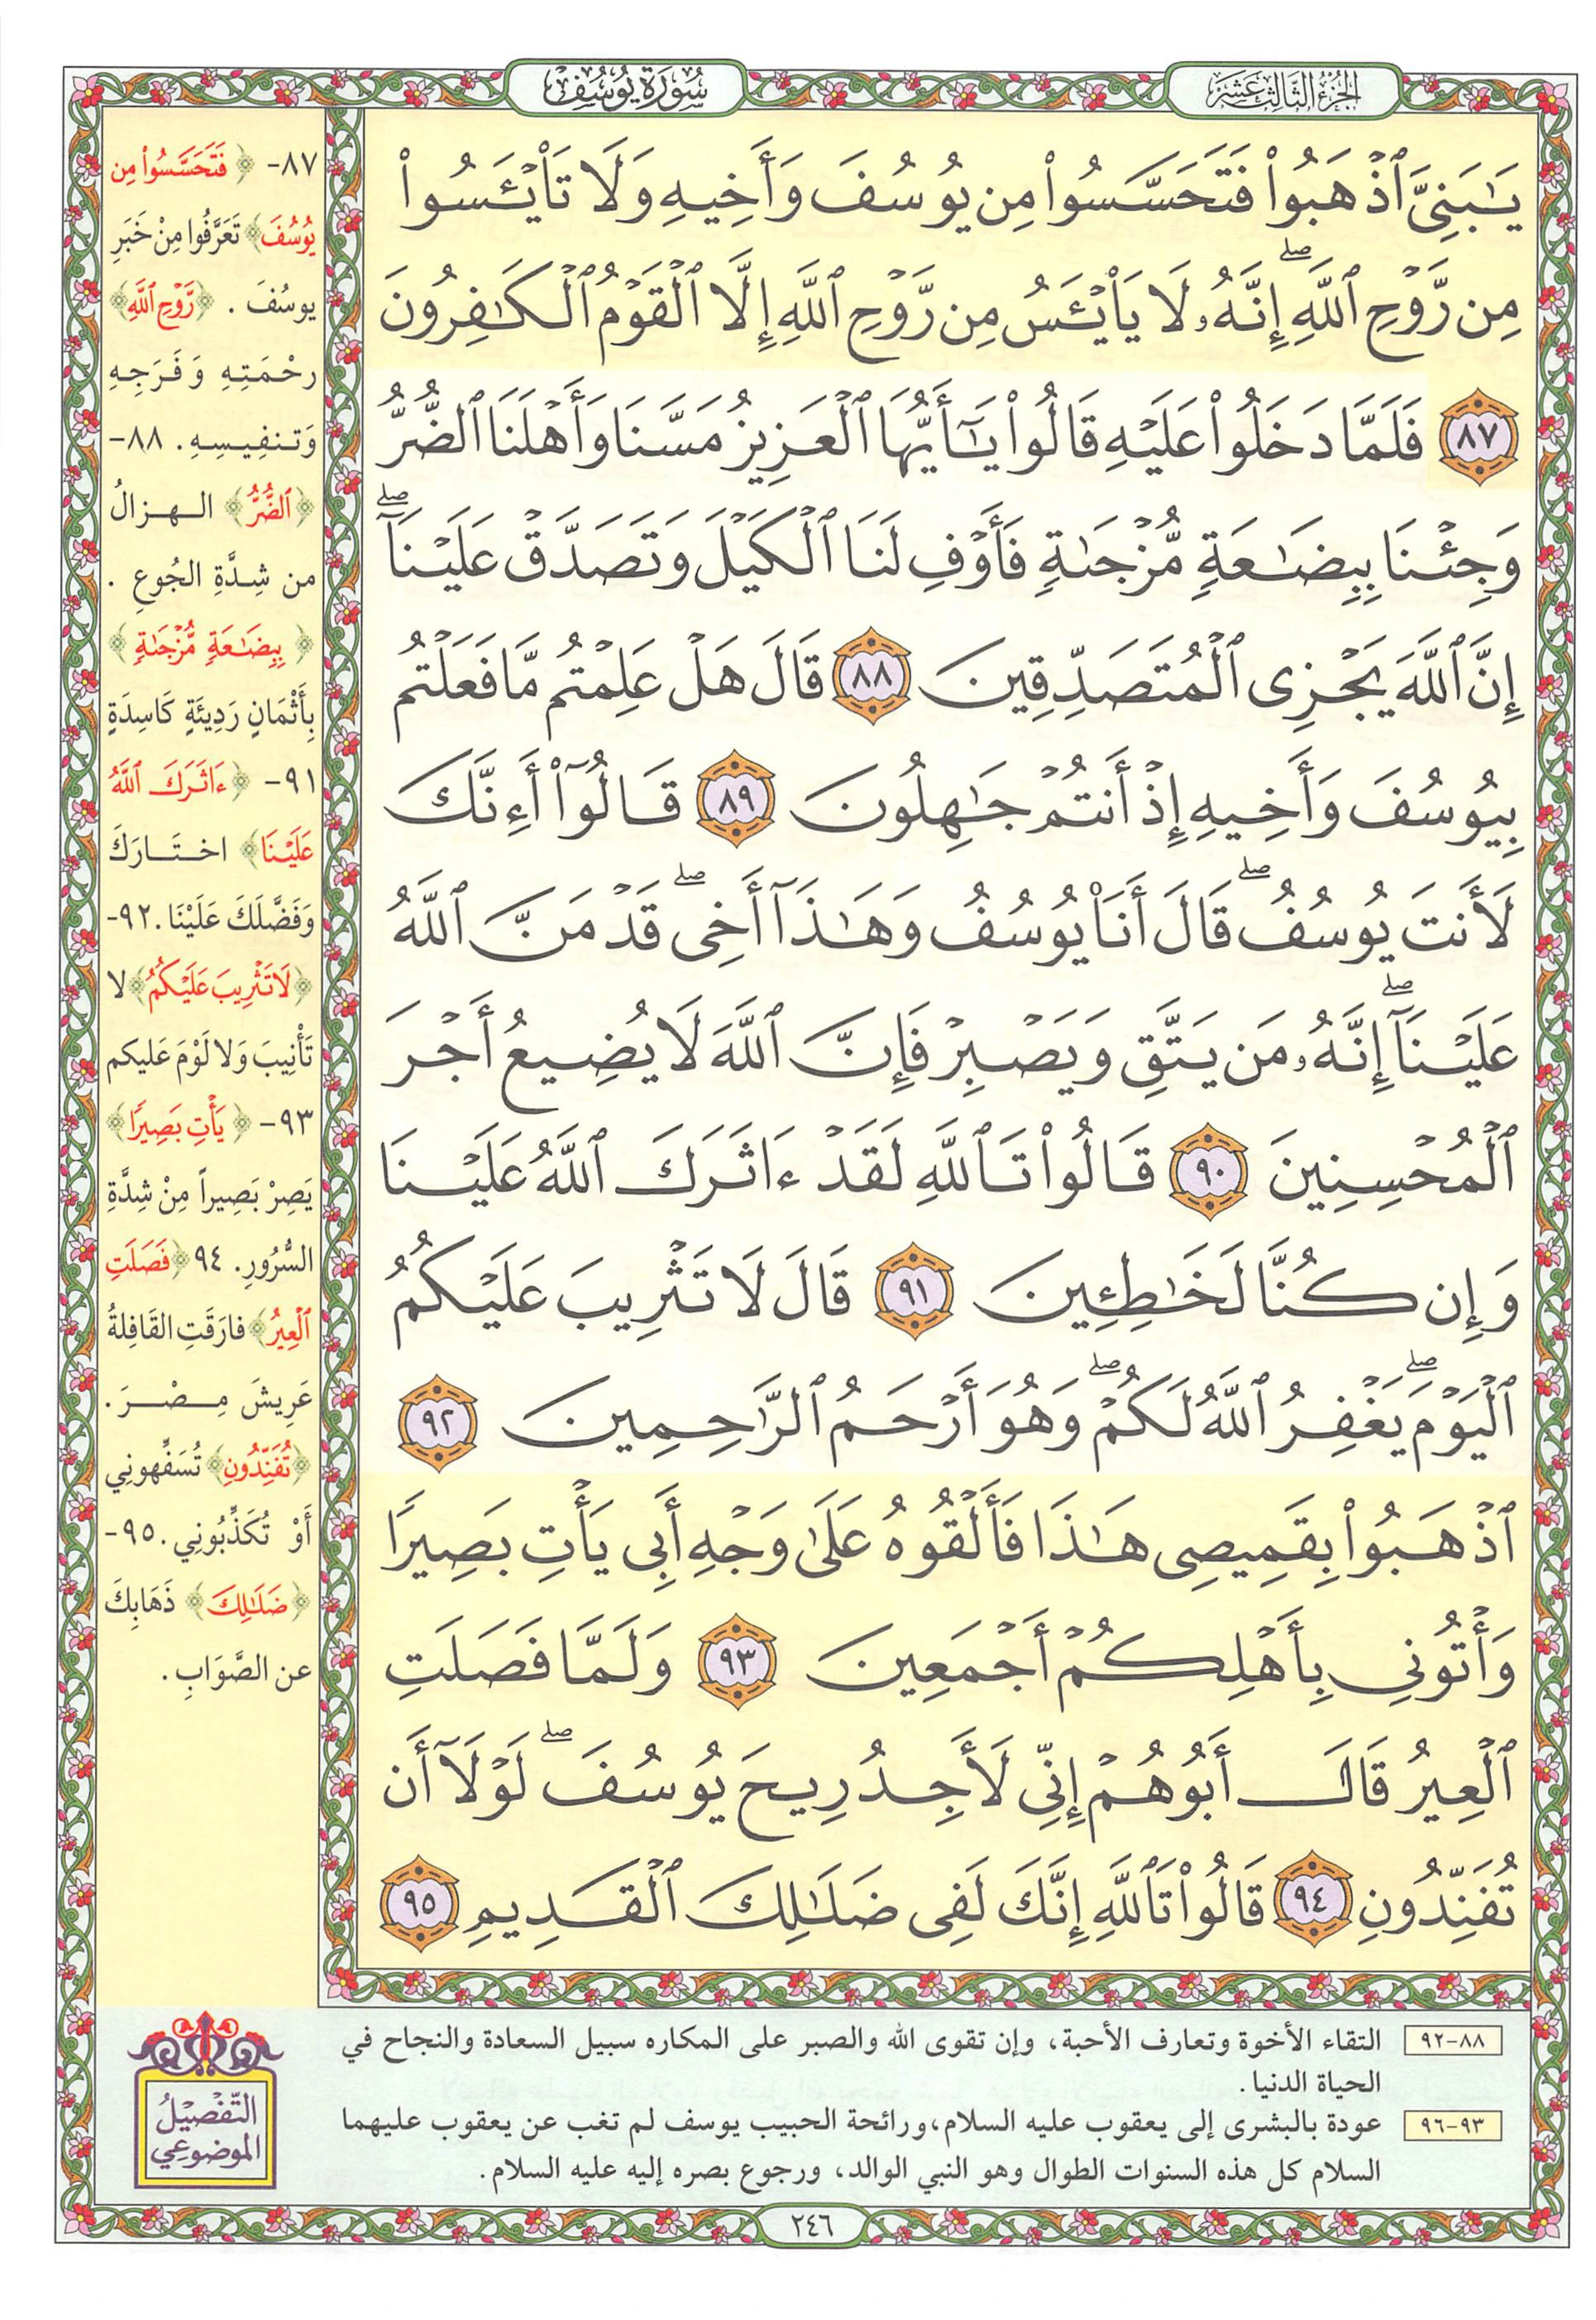 الجزء الثالث عشر
سورة يوسف
يَـٰبَنِىَّ ٱذْهَبُوا۟ فَتَحَسَّسُوا۟ مِن يُوسُفَ وَأَخِيهِ وَلَا تَا۟يْـَٔسُوا۟
مِن رَّوْحِ ٱللَّهِ ۖ إِنَّهُۥ لَا يَا۟يْـَٔسُ مِن رَّوْحِ ٱللَّهِ إِلَّا ٱلْقَوْمُ ٱلْكَـٰفِرُونَ
٨٧ فَلَمَّا دَخَلُوا۟ عَلَيْهِ قَالُوا۟ يَـٰٓأَيُّهَا ٱلْعَزِيزُ مَسَّنَا وَأَهْلَنَا ٱلضُّرُّ
وَجِئْنَا بِبِضَـٰعَةٍ مُّزْجَىٰةٍ فَأَوْفِ لَنَا ٱلْكَيْلَ وَتَصَدَّقْ عَلَيْنَآ ۖ
إِنَّ ٱللَّهَ يَجْزِى ٱلْمُتَصَدِّقِينَ ٨٨ قَالَ هَلْ عَلِمْتُم مَّا فَعَلْتُم
بِيُوسُفَ وَأَخِيهِ إِذْ أَنتُمْ جَـٰهِلُونَ ٨٩ قَالُوٓا۟ أَءِنَّكَ
لَأَنتَ يُوسُفُ ۖ قَالَ أَنَا۠ يُوسُفُ وَهَـٰذَآ أَخِى ۖ قَدْ مَنَّ ٱللَّهُ
عَلَيْنَآ ۖ إِنَّهُۥ مَن يَتَّقِ وَيَصْبِرْ فَإِنَّ ٱللَّهَ لَا يُضِيعُ أَجْرَ
ٱلْمُحْسِنِينَ ٩٠ قَالُوا۟ تَٱللَّهِ لَقَدْ ءَاثَرَكَ ٱللَّهُ عَلَيْنَا
وَإِن كُنَّا لَخَـٰطِـِٔينَ ٩١ قَالَ لَا تَثْرِيبَ عَلَيْكُمُ
ٱلْيَوْمَ ۖ يَغْفِرُ ٱللَّهُ لَكُمْ ۖ وَهُوَ أَرْحَمُ ٱلرَّٰحِمِينَ ٩٢
ٱذْهَبُوا۟ بِقَمِيصِى هَـٰذَا فَأَلْقُوهُ عَلَىٰ وَجْهِ أَبِى يَأْتِ بَصِيرًا
وَأْتُونِى بِأَهْلِكُمْ أَجْمَعِينَ ٩٣ وَلَمَّا فَصَلَتِ
ٱلْعِيرُ قَالَ أَبُوهُمْ إِنِّى لَأَجِدُ رِيحَ يُوسُفَ ۖ لَوْلَآ أَن
تُفَنِّدُونِ ٩٤ قَالُوا۟ تَٱللَّهِ إِنَّكَ لَفِى ضَلَـٰلِكَ ٱلْقَدِيمِ ٩٥
٨٧- ﴿فَتَحَسَّسُوا۟ مِن
يُوسُفَ﴾ تَعَرَّفُوا مِنْ خَبَرِ
يوسُفَ . ﴿رَّوْحِ ٱللَّهِ﴾
رحْمَتِهِ وَفَرَجِهِ
وَتنفِيسِهِ. ٨٨-
﴿ٱلضُّرُّ﴾ الهزالُ
من شِدَّةِ الجُوعِ .
﴿بِبِضَـٰعَةٍ مُّزْجَىٰةٍ﴾
بِأَثْمَانٍ رَدِيئَةٍ كَاسِدَةٍ
٩١- ﴿ءَاثَرَكَ ٱللَّهُ
عَلَيْنَا﴾ اختَارَكَ
وَفَضَّلَكَ عَلَيْنَا. ٩٢-
﴿لَا تَثْرِيبَ عَلَيْكُمُ﴾ لا
تَأْنِيبَ وَلا لَوْمَ عَليكم
٩٣- ﴿يَأْتِ بَصِيرًا﴾
يَصِرْ بَصِيراً مِنْ شِدَّةِ
السُّرُورِ. ٩٤ ﴿فَصَلَتِ
ٱلْعِيرُ﴾ فارَقَتِ القَافِلةُ
عَرِيشَ مِصْرَ .
﴿تُفَنِّدُونِ﴾ تُسَفِّهوني
أَوْ تُكَذِّبُوني. ٩٥-
﴿ضَلَـٰلِكَ﴾ ذَهَابِكَ
عن الصَّوَابِ .
٨٨-٩٢ التقاء الأخوة وتعارف الأحبة، وإن تقوى الله والصبر على المكاره سبيل السعادة والنجاح في
الحياة الدنيا .
٩٣-٩٦ عودة بالبشرى إلى يعقوب عليه السلام،ورائحة الحبيب يوسف لم تغب عن يعقوب عليهما
السلام كل هذه السنوات الطوال وهو النبي الوالد، ورجوع بصره إليه عليه السلام.
التَّفْصِيْلُ
الموضوعِي
٢٤٦